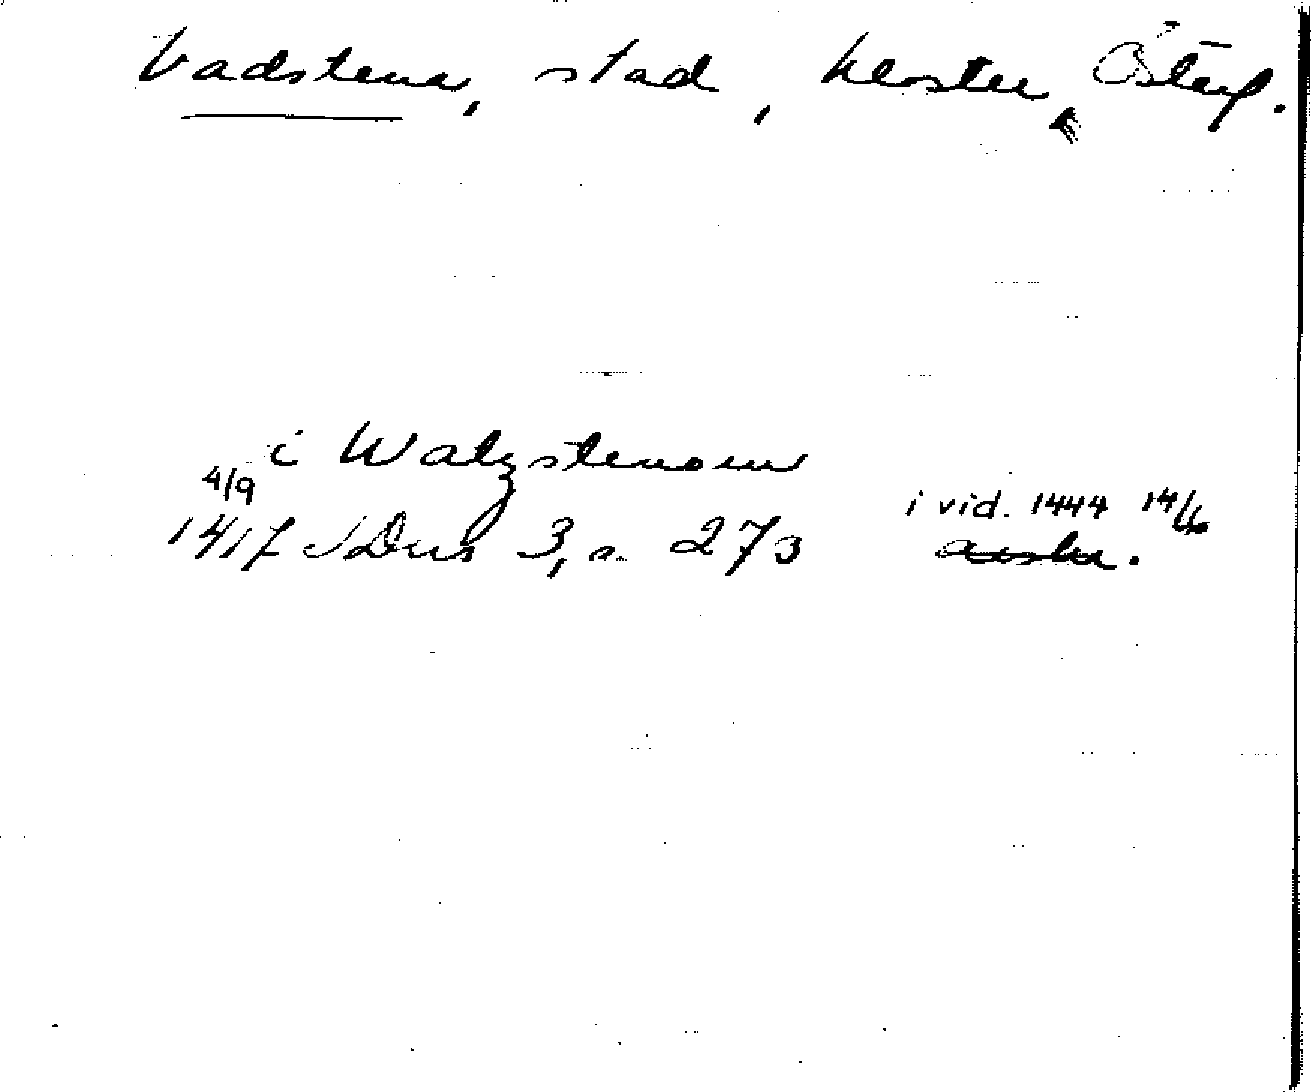 Vadstena, stad, kloster, Östergl.
i Watzstenom
4/9
1417 SDns 3, s. 273 i vid. 1444 14/6
avskr.